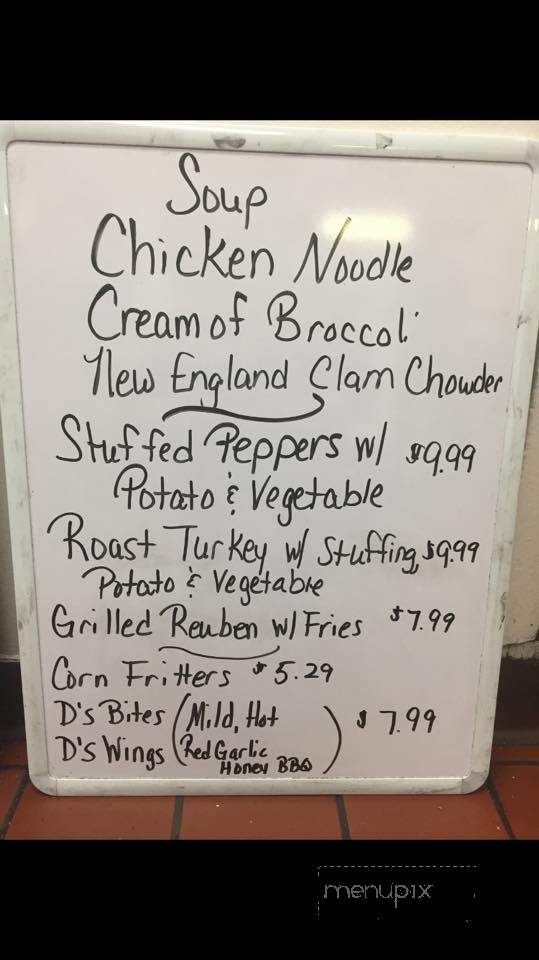 Soup
Chicken Noodle
Cream of Broccoli
New England Clam Chowder
Stuffed Peppers w/ $9.99
Potato & Vegetable
Roast Turkey w/ Stuffing, $9.99
Potato & Vegetable
Grilled Reuben w/ Fries $7.99
Corn Fritters $5.29
D's Bites (Mild, Hot
D's Wings Red Garlic
Honey BBQ) $7.99
menupix